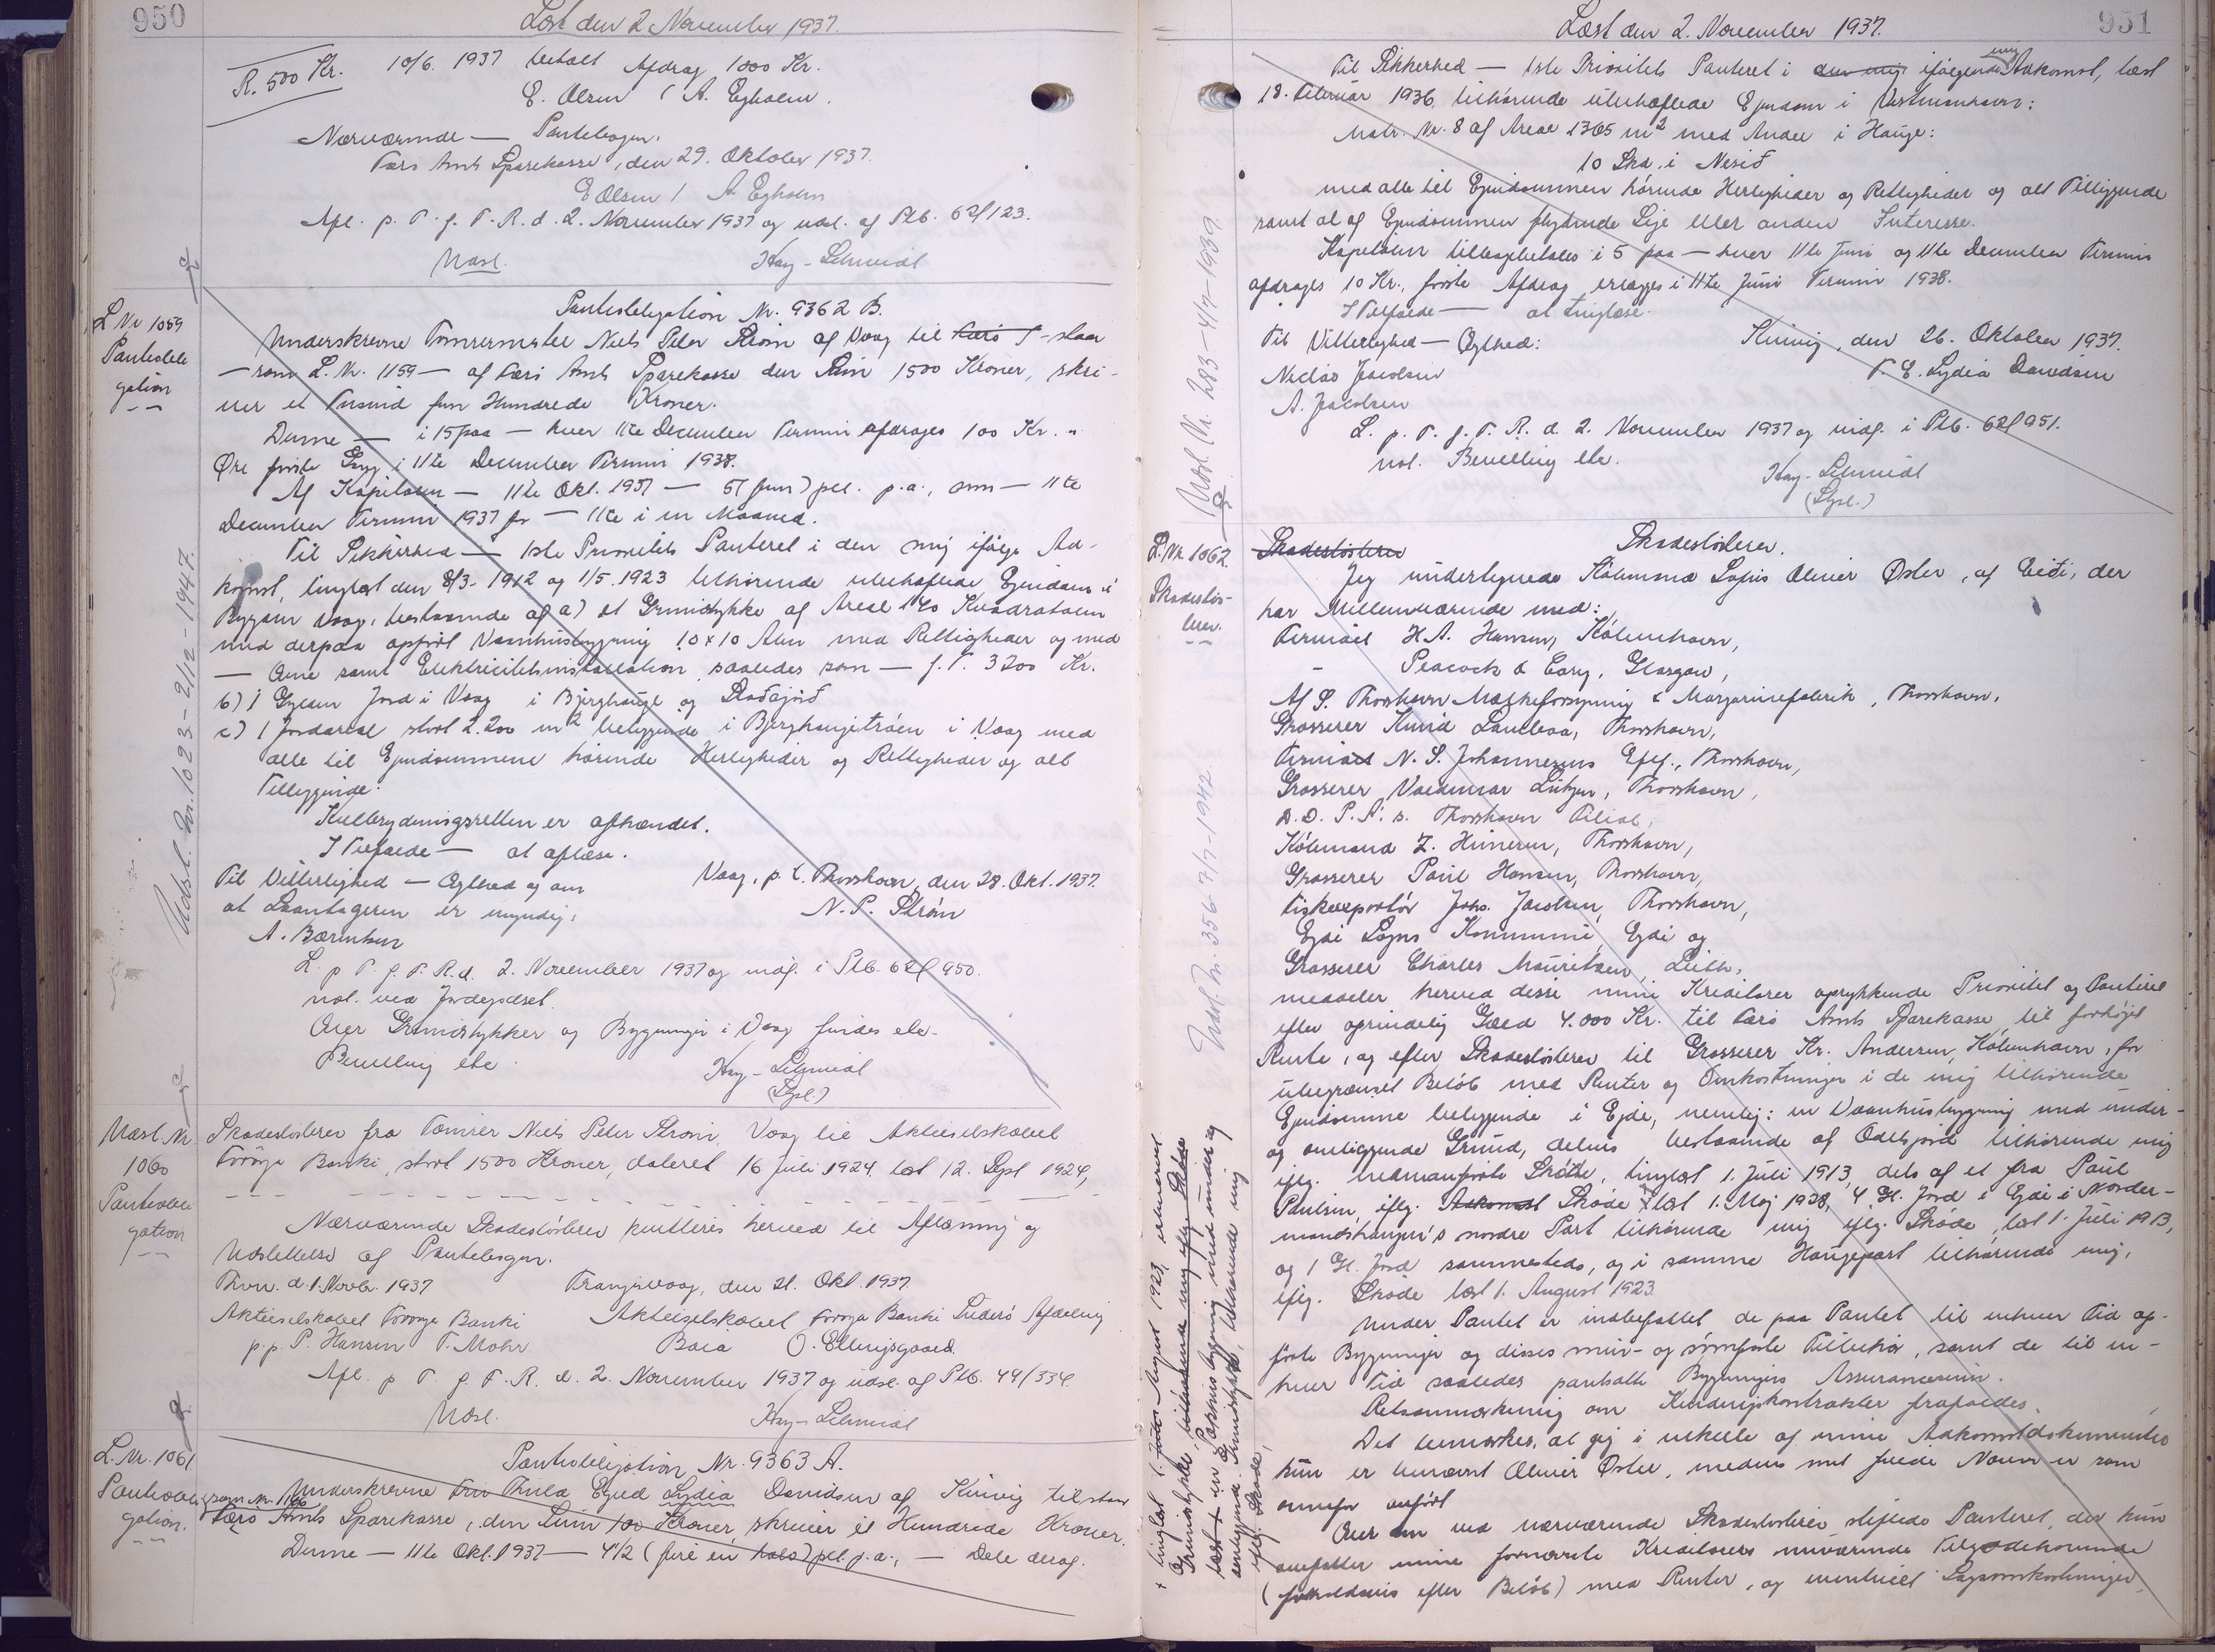 950
Læst den 2 November 1937.
R. 500 Kr.
10/6. 1937 betalt Afdrag 1000 Kr.
E. Olsen / A. Egholm.
Nærværende — Pantebogen.
Færø Amts Sparekasse, den 29. Oktober 1937.
E Olsen / A. Egholm
Afl. p. T. f. F. R. d. 2. November 1937 og udsl. af Ptb. 62/123.
Udsl.
Hay-Schmidt
L. Nr 1059
Panteobligation
Panteobligation Nr. 9362 B.
Underskrevne Tømrermester Niels Peter Strøm af Vaag til Færø - staar
— som L. Nr. 1159 — af Færø Amts Sparekasse den Sum 1500 Kroner, skri-
ver et Tusind fem Hundrede Kroner.
Denne — i 15 paa — hver 11te December Termin afdrages 100 Kr. "
Øre første Gang i 11te December Termin 1938.
Af Kapitalen — 11te Okt. 1937 — 5 (fem) pCt. p.a., som — 11te
December Termin 1937 for — 11te i en Maaned.
Til Sikkerhed — 1ste Prioritets Panteret i den mig ifølge Ad-
komst, tinglæst den 8/3. 1912 og 1/5. 1923 tilhørende ubehæftede Ejendom i
Bygden Vaag, bestaaende af a) et Grundstykke af Areal 140 Kvadratalen
med derpaa opført Vaanhusbygning 10 x 10 Alen med Rettigheder og med
— Ovne samt Elektricitetsinstallation, saaledes som — f. T. 3200 Kr.
b) 1 Gylden Jord i Vaag i Bjerghauge og
c) 1 Jordareal stort 2.200 m2 beliggende i Bjerghaugetrøen i Vaag med
alle til Ejendommene hørende Herligheder og Rettigheder og alt
Tilliggende.
Kulbrydningsretten er afhændet.
I Tilfælde — at aflæse.
Til Vitterlighed — Ægthed og om
at Laantageren er myndig:
A. Bærentsen
Vaag, p. t. Thorshavn, den 28. Okt. 1937.
N. P. Strøm
L. p T. f. F. R. d. 2. November 1937 og indf. i Ptb. 62/950.
not. ved Jordegodset.
Over Grundstykker og Bygninger i Vaag findes ele-
Bevilling etc.
Hay-Schmidt
(Stpl.)
Udsl. Nr. 1023 - 2/12 - 1947.
Udsl. Nr
1060
Panteobligation
Skadesløsbrev fra Tømrer Niels Peter Strøm, Vaag til Aktieselskabet
Føroya Banki, stort 1500 Kroner, dateret 16 Juli 1924, læst 12. Sept 1924,
Nærværende Skadesløsbrev kvitteres herved til Aflæsning og
Udslettelse af Pantebogen.
Thvn. d. 1. Novb. 1937
Trangisvaag, den 21. Okt. 1937.
Aktieselskabet Føroya Banki
Aktieselskabet Føroya Banki Suderø Afdeling
p.p. P. Hansen T. Mohr
O. Effersgaard.
Afl. p T. f. F. R. d. 2. November 1937 og udsl. af Ptb. 49/334.
Udsl.
Hay-Schmidt
L. Nr. 1061.
Panteobligation.
Panteobligation Nr. 9363 A.
Underskrevne Fru Thula Lydia Davidsen af Kvivig tilstaar
som Nr. 1166
Færø Amts Sparekasse, den Sum 100 Kroner, skriver et Hundrede Kroner.
Denne — 11te Okt. 1937 — 4 1/2 (fire en halv) pCt. p.a., — Dele deraf.
951
Læst den 2. November 1937.
Til Sikkerhed — 1ste Prioritets Panteret i den mig ifølgende mig Adkomst, læst
18. Februar 1936, tilhørende ubehæftede Ejendom i Vestmanhavn:
Matr. Nr. 8 af Areal 1365 m2 med Andel i Hauge:
10 Skd. i Nesið
med alle til Ejendommen hørende Herligheder og Rettigheder og alt Tilliggende
samt al af Ejendommen flydende Leje eller anden Interesse.
Kapitalen tilbagebetales i 5 paa — hver 11te Juni og 11te December Termin
afdrages 10 Kr., første Afdrag erlægges i 11te Juni Termin 1938.
I Tilfælde — at tinglæse.
Til Vitterlighed — Ægthed:
Kvivig, den 26. Oktober 1937.
Niclas Jacobsen
T. E. Lydia Davidsen
A. Jacobsen
L. p. T. f. F. R. d. 2. November 1937 og indf. i Ptb. 62/951.
not. Bevilling etc.
Hay-Schmidt
(Stpl.)
Udsl. Nr. 283 - 4/7 - 1939.
L. Nr. 1062.
Skadesløsbrev.
Skadesløsbrev
Skadesløsbrev.
Jeg undertegnede Købmand Sofus Oliver Øster, af Eiði, der
har Mellemværende med:
Firmaet H. A. Hansen, København,
- Peacock & Cary, Glasgow,
A/S. Thorshavn Mælkeforsyning & Margarinefabrik, Thorshavn,
Grosserer Knud Lamhauge, Thorshavn,
Firmaet N. S. Johannesens Eftf., Thorshavn,
Grosserer Valdemar Lützen, Thorshavn,
D. D. P. A: s. Thorshavn Filial,
Købmand Z. Heinesen, Thorshavn,
Grosserer Poul Hansen, Thorshavn,
Fiskeexportør Johs. Jacobsen, Thorshavn,
Ejdi Sogns Kommune, Ejdi og
Grosserer Charles Mouritzen, Leith,
meddeler herved disse mine Kreditorer oprykkende Prioritet og Panteret
efter oprindelig Gæld 4.000 Kr. til Færø Amts Sparekasse, til forhøjet
Rente, og efter Skadesløsbrev til Grosserer Kr. Andersen, København, for
ubegrænset Beløb med Renter og Omkostninger i de mig tilhørende
Ejendomme beliggende i Ejde, nemlig: en Vaanhusbygning med under-
og omliggende Grund, delvis bestaaende af Odelsjord tilhørende mig
iflg. nedenanførte Skøde, tinglæst 1. Juli 1913, dels af et fra Poul
Poulsen, iflg. Adkomst Skøde + læst 1. Maj 1928, 4 Gl. Jord i Ejdi i Norder-
mandshaugen's nordre Part tilhørende mig iflg. Skøde, læst 1. Juli 1913,
og 1 Gl. Jord sammesteds, og i samme Haugepart tilhørende mig,
iflg. Skøde læst 1. August 1923.
Under Pantet er indbefattet de paa Pantet til enhver Tid op-
førte Bygninger og disses mur- og sømfaste Tilbehør, samt de til en-
hver Tid saaledes pantsatte Bygningers Assurancesum.
Retsanmærkning om Kenderingskontrakter frafaldes.
Det bemærkes, at jeg i enkelte af mine Adkomstdokumenter
kun er benævnt Oliver Øster, medens mit fulde Navn er som
ovenfor anført
Over en ved nærværende Skadesløsbrev stiftede Panteret, der kun
omfatter mine fornævnte Kreditorers nuværende Tilgodehavende
(forholdsvis efter Beløb) med Renter, og eventuelt Sagsomkostninger,
Udsl. Nr. 356 - 7/7 - 1942.
+ tinglæst 1. Juli August 1923, erhvervet
Grundstykke, tilhørende mig iflg. Skøde
læst + en Pakhusbygning med under og
omliggende Grundstykke, tilhørende mig
iflg. Skøde,